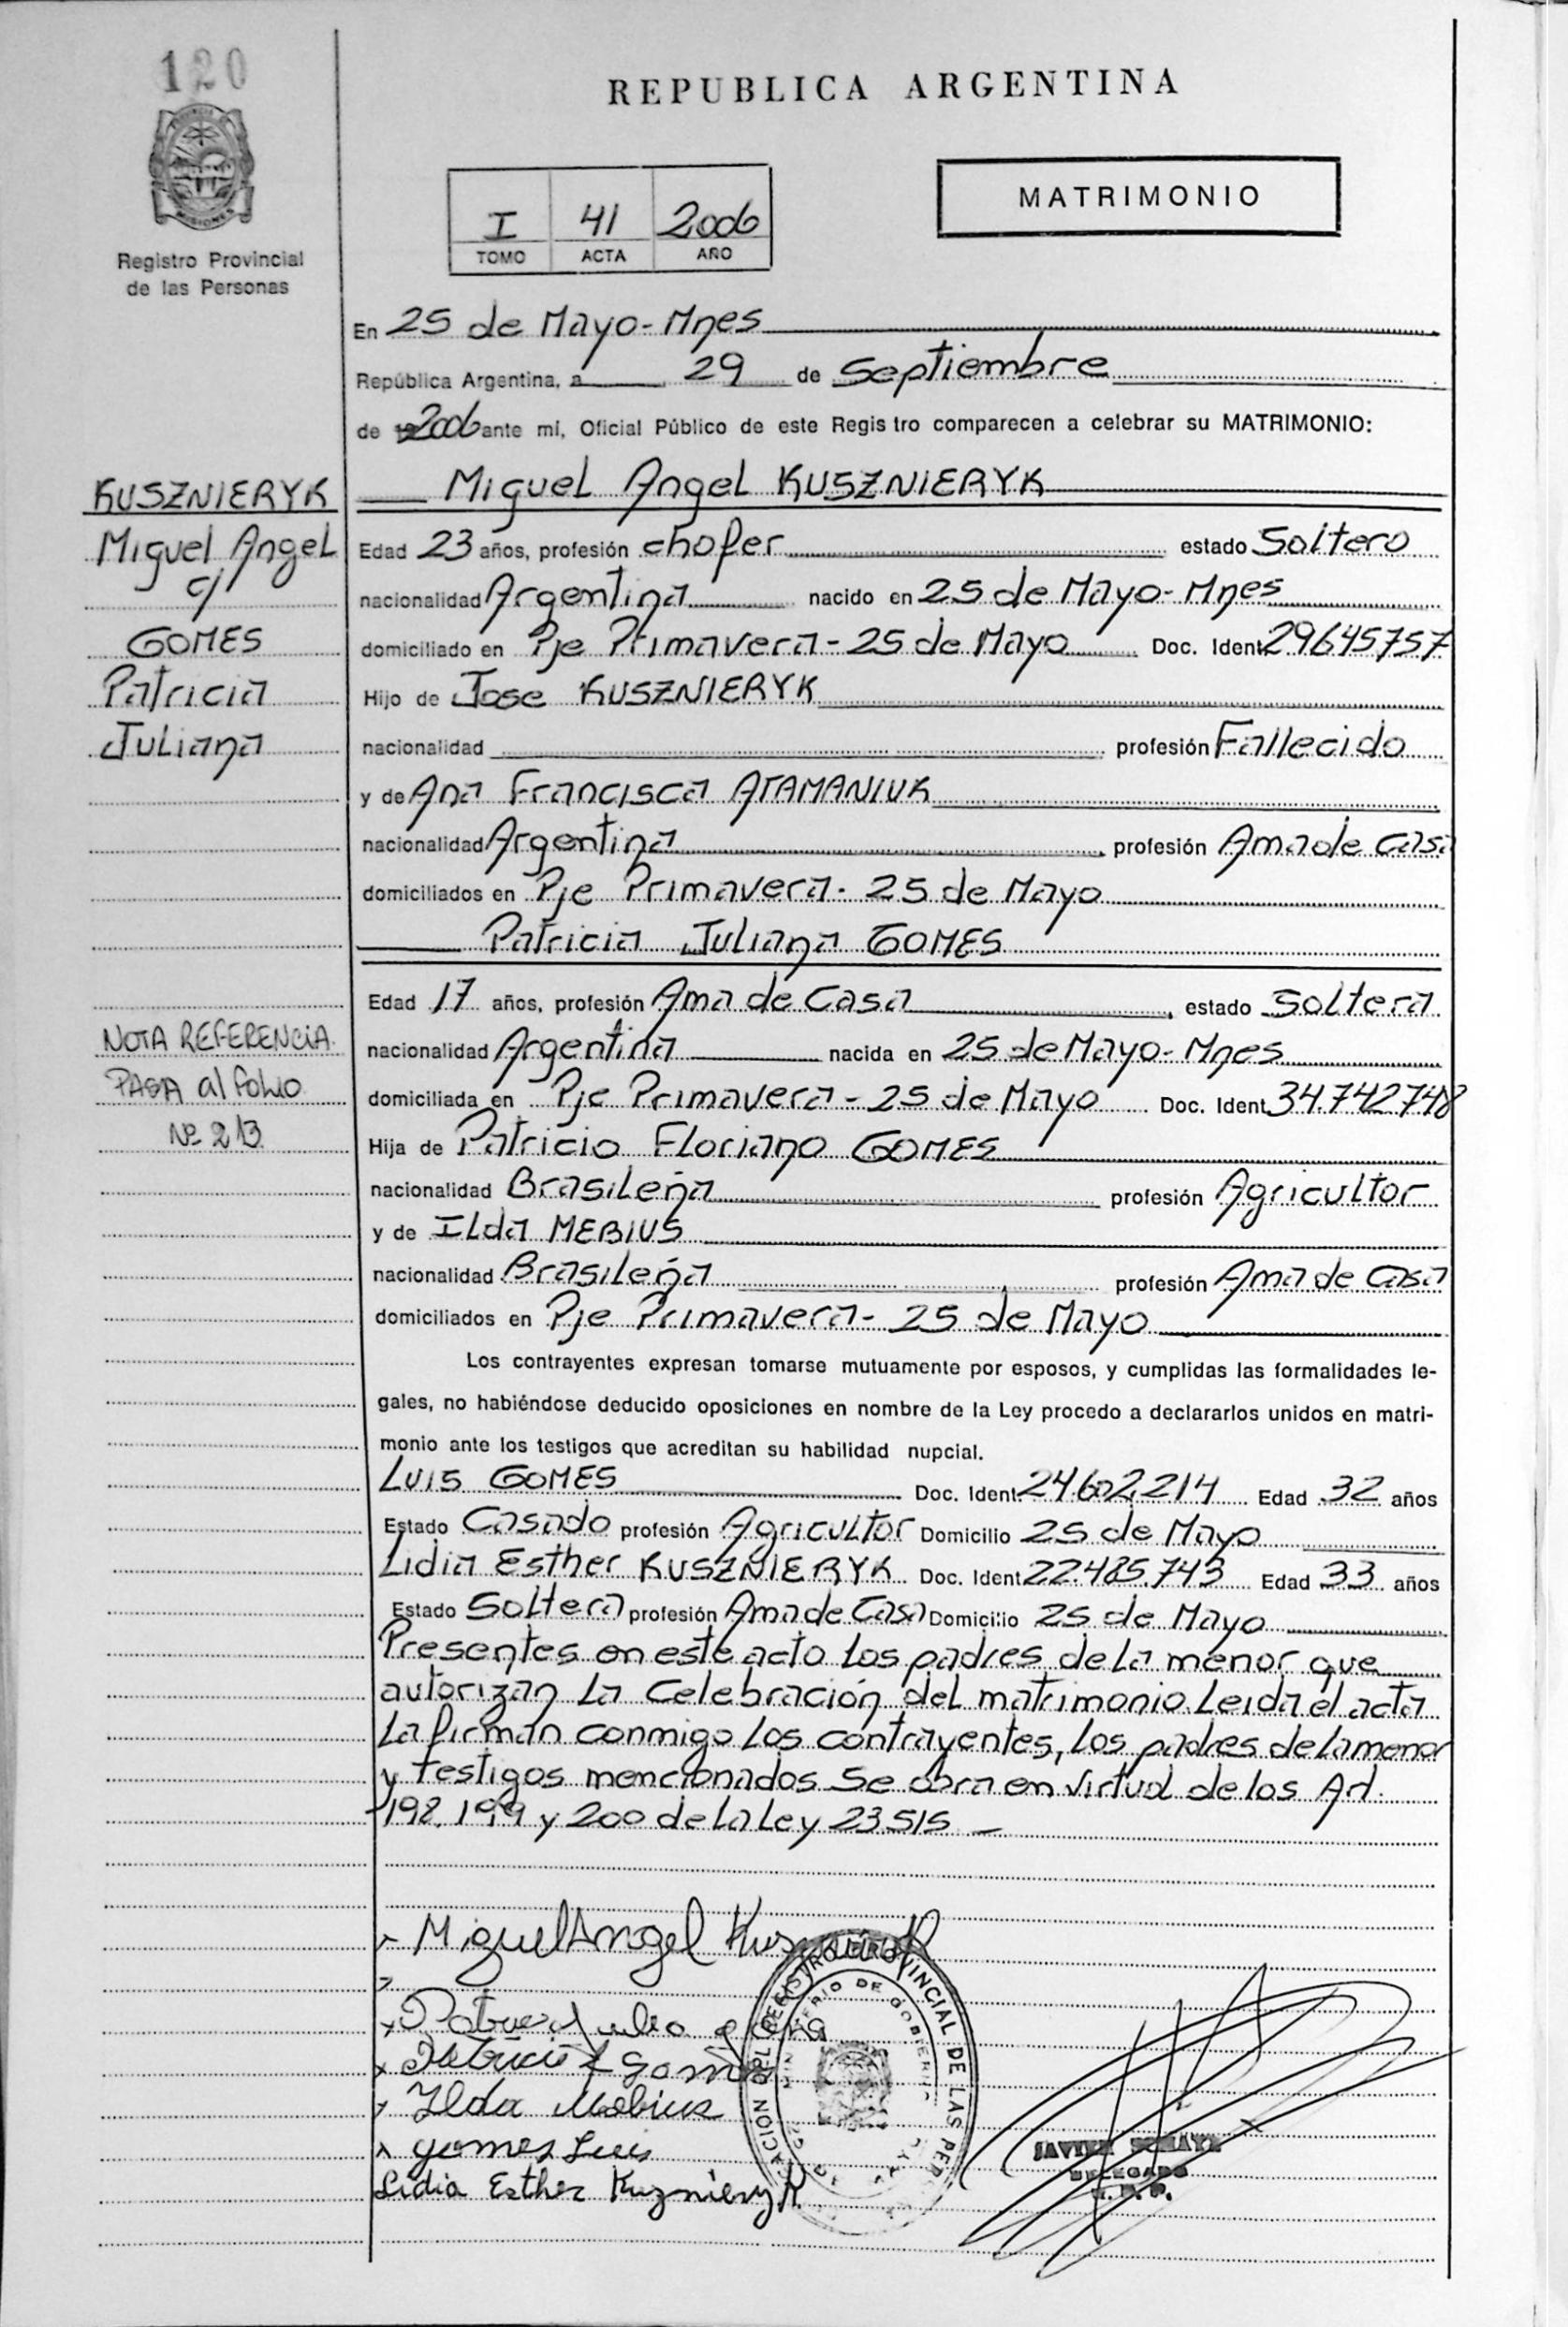 120
Registro Provincial
de las Personas
REPUBLICA ARGENTINA
MATRIMONIO
I 41 2006
TOMO ACTA AÑO
En 25 de Mayo-Mnes
República Argentina, a 29 de Septiembre
de 2006 ante mí, Oficial Público de este Registro comparecen a celebrar su MATRIMONIO:
KUSZNIERYK
Miguel Angel
c/
GOMES
Patricia
Juliana
Miguel Angel KUSZNIERYK
Edad 23 años, profesión chofer estado Soltero
nacionalidad Argentina nacido en 25 de Mayo-Mnes
domiciliado en Pje Primavera-25 de Mayo Doc. Ident. 29645757
Hijo de Jose KUSZNIERYK
nacionalidad profesión Fallecido
y de Ana Francisca ATAMANIUK
nacionalidad Argentina profesión Ama de Casa
domiciliados en Pje Primavera- 25 de Mayo
Patricia Juliana GOMES
Edad 17 años, profesión Ama de Casa, estado Soltera
NOTA REFERENCIA
PASA al folio
Nº 213
nacionalidad Argentina nacida en 25 de Mayo-Mnes
domiciliada en Pje Primavera-25 de Mayo Doc. Ident. 34.742748
Hija de Patricio Floriano GOMES
nacionalidad Brasileña profesión Agricultor
y de Ilda MEBIUS
nacionalidad Brasileña profesión Ama de Casa
domiciliados en Pje Primavera- 25 de Mayo
Los contrayentes expresan tomarse mutuamente por esposos, y cumplidas las formalidades le-
gales, no habiéndose deducido oposiciones en nombre de la Ley procedo a declararlos unidos en matri-
monio ante los testigos que acreditan su habilidad nupcial.
Luis GOMES Doc. Ident. 24.602.214 Edad 32 años
Estado Casado profesión Agricultor Domicilio 25 de Mayo
Lidia Esther KUSZNIERYK Doc. Ident. 22.485.743 Edad 33 años
Estado Soltera profesión Ama de Casa Domicilio 25 de Mayo
Presentes en este acto los padres de la menor que
autorizan la Celebración del matrimonio. Leida el acta
la firman conmigo los contrayentes, los padres de la menor
y testigos mencionados Se obra en virtud de los Art.
198, 199 y 200 de la Ley 23.515
Miguel Angel
Ilda Mebius
gomes Luis
Lidia Esther Kuznieryk
REGISTRO PROVINCIAL DE LAS
DELEGADO